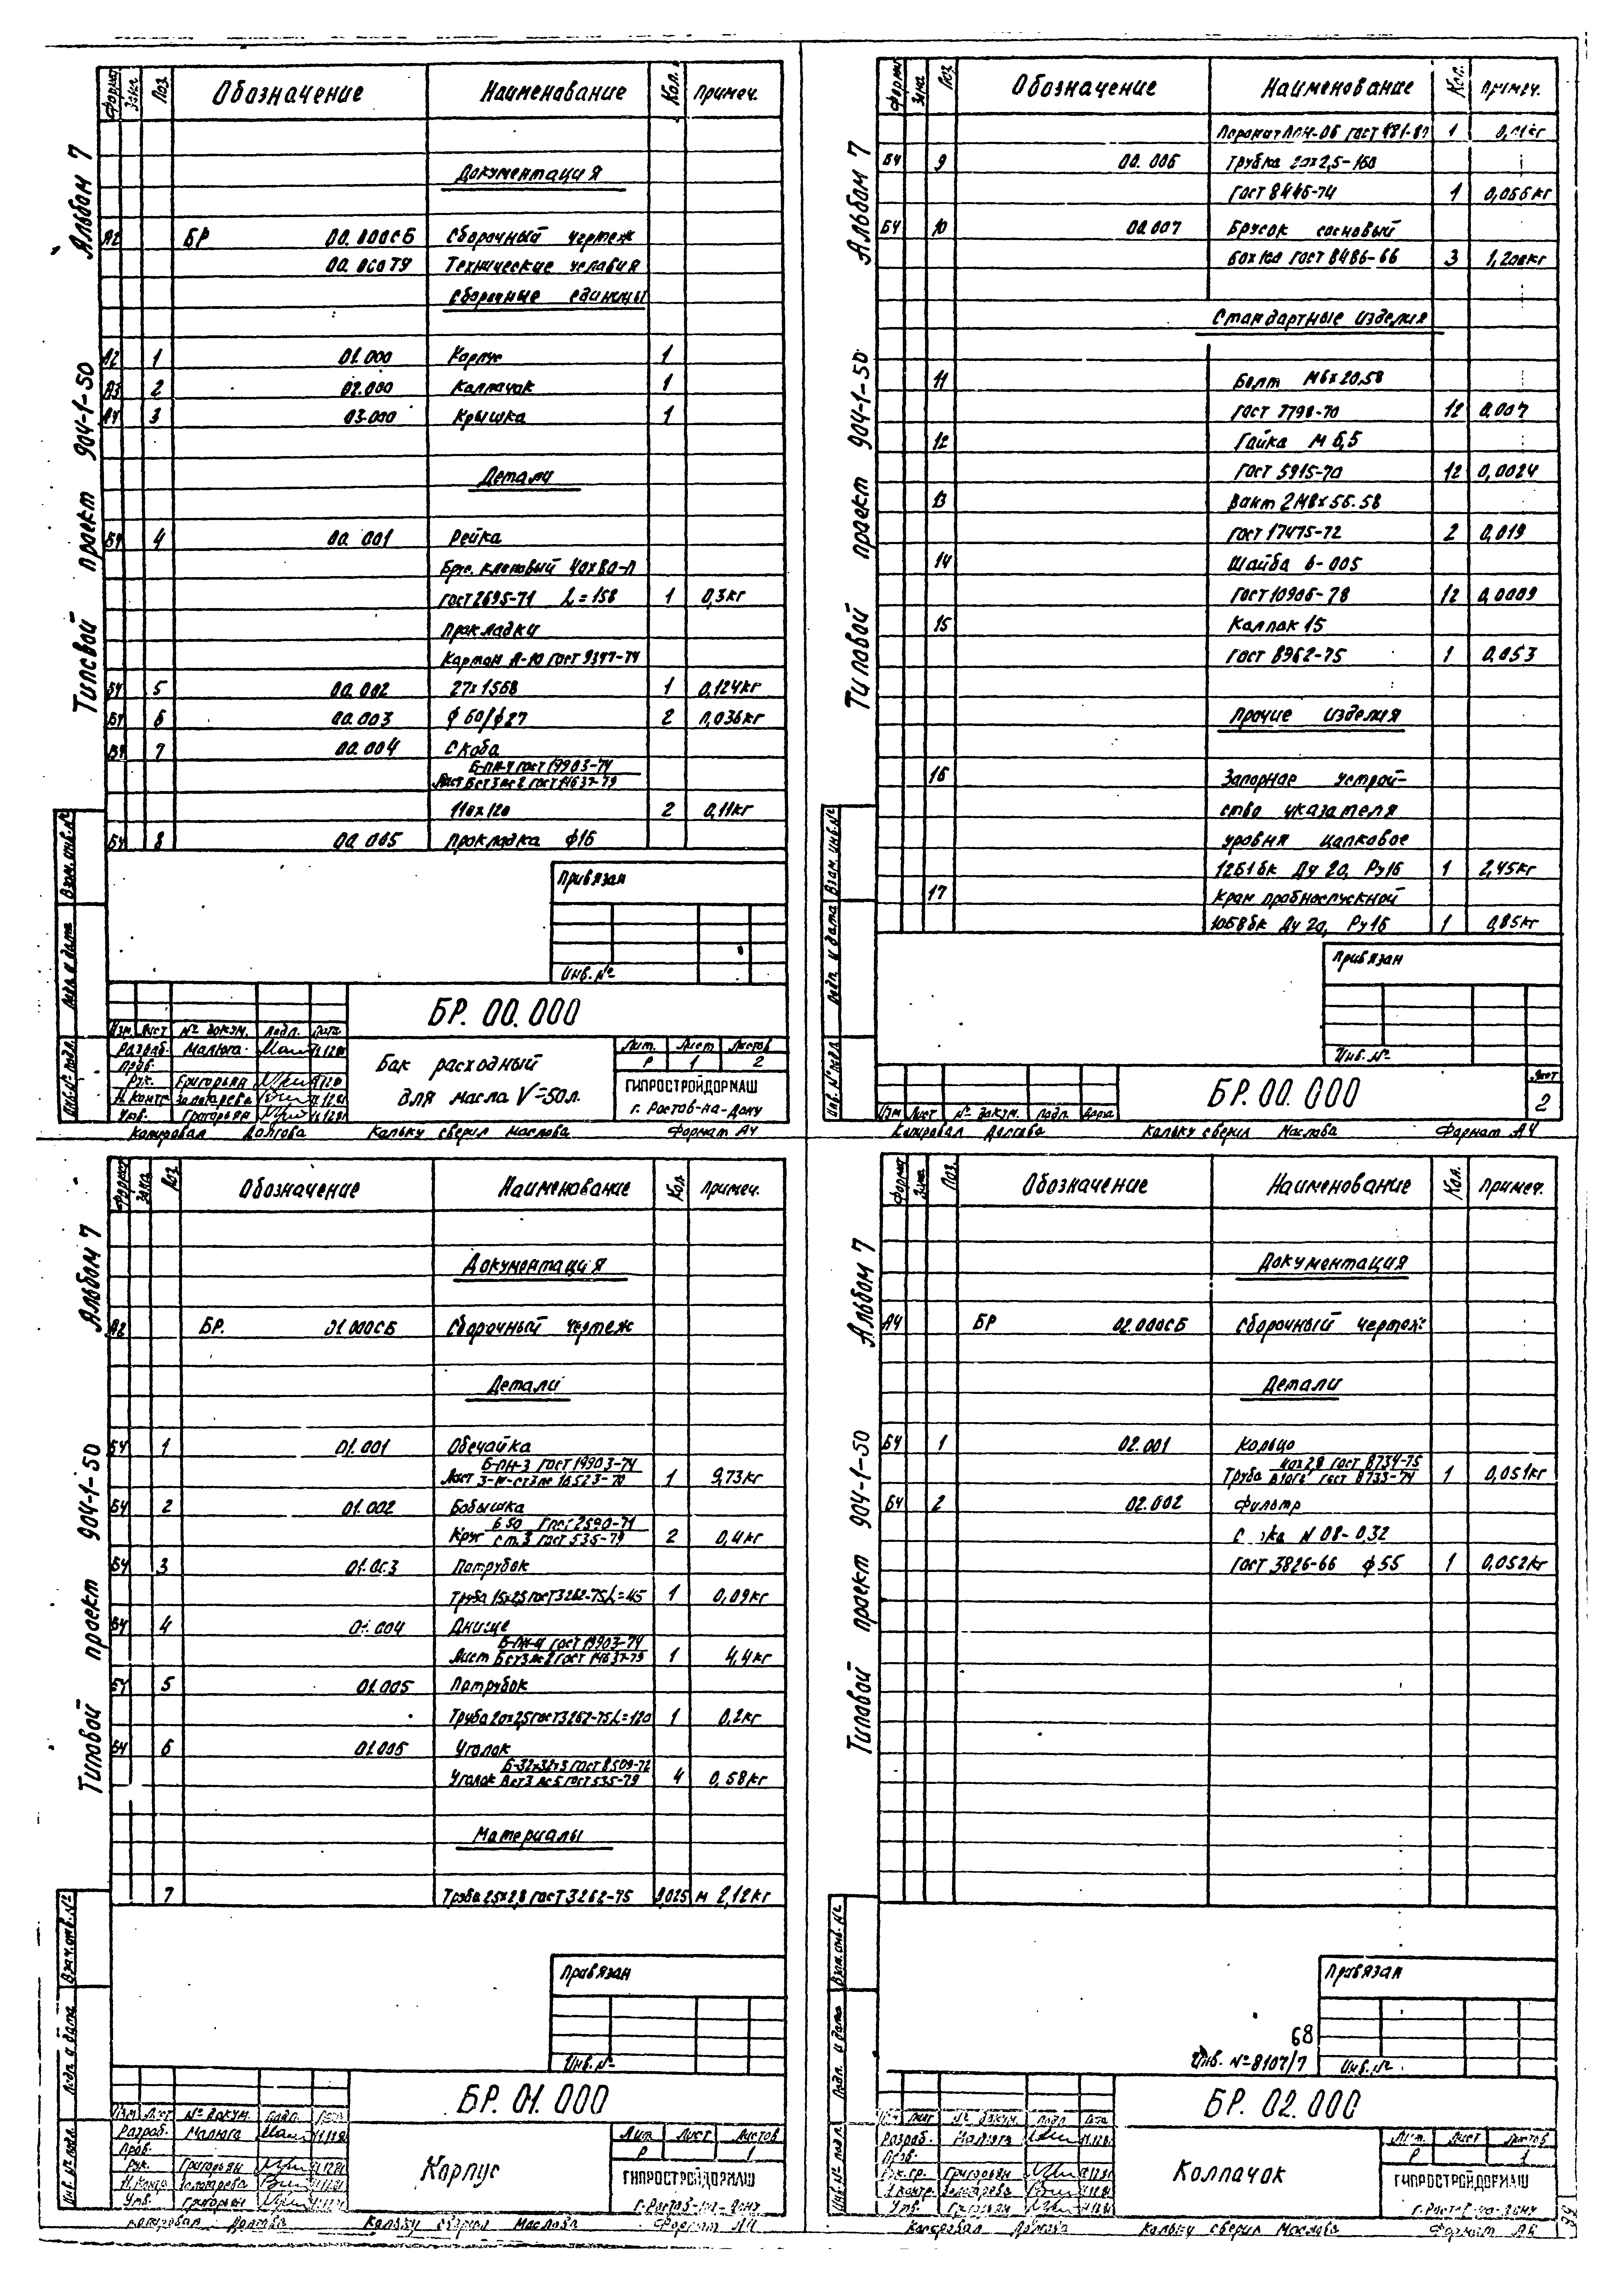 Альбом 7
Типовой проект 904-1-50
Формат Зона Поз. Обозначение Наименование Кол. Примеч.
Документация
А2 БР 00.000СБ Сборочный чертеж
00.000ТУ Технические условия
Сборочные единицы
А2 1 01.000 Корпус 1
А3 2 02.000 Колпачок 1
А4 3 03.000 Крышка 1
Детали
БЧ 4 00.001 Рейка
Брус. кленовый 40х80-П
ГОСТ 2695-71 L=158 1 0,3кг
Прокладки
Картон А-10 ГОСТ 9347-74
БЧ 5 00.002 27х1568 1 0,124кг
БЧ 6 00.003 ф60/ф27 2 0,036кг
БЧ 7 00.004 Скоба
Б-ПН-4 ГОСТ 19903-74
Лист Вст3пс2 ГОСТ 14637-79
110х120 2 0,11кг
БЧ 8 00.005 Прокладка ф16
Привязан
Инв. №
Взам. инв. №
Подп. и дата
Инв. № подл.
БР. 00.000
Изм. Лист № докум. Подп. Дата
Разраб. Малюга 11.12.81
Пров.
Рук. Григорьян
Н.контр Золотарева
Утв. Григорьян
Бак расходный
для масла V=50л.
Лит. Лист Листов
Р 1 2
ГИПРОСТРОЙДОРМАШ
г. Ростов-на-Дону
Копировал Долгова Кальку сверил Маслова Формат А4
Альбом 7
Типовой проект 904-1-50
Формат Зона Поз. Обозначение Наименование Кол. Примеч.
Паронит ПОН-0,6 ГОСТ 481-80 1 0,01кг
БЧ 9 00.006 Трубка 20х2,5-160
ГОСТ 8446-74 1 0,066кг
БЧ 10 00.007 Брусок сосновый
60х100 ГОСТ 8486-66 3 1,200кг
Стандартные изделия
11 Болт М6х20.58
ГОСТ 7798-70 12 0,007
12 Гайка М6,5
ГОСТ 5915-70 12 0,0024
13 Винт 2М8х56.58
ГОСТ 17475-72 2 0,019
14 Шайба 6-005
ГОСТ 10906-78 12 0,0009
15 Колпак 15
ГОСТ 8962-75 1 0,053
Прочие изделия
16 Запорное устрой-
ство указателя
уровня цапковое
12б1бк Ду 20, Ру16 1 2,45кг
17 Кран пробноспускной
10б8бк Ду 20, Ру16 1 0,85кг
Привязан
Инв. №
Взам. инв. №
Подп. и дата
Инв. № подл.
Изм Лист № докум. Подп. Дата
БР. 00. 000
Лист
2
Копировал Долгова Кальку сверил Маслова Формат А4
Альбом 7
Типовой проект 904-1-50
Формат Зона Поз. Обозначение Наименование Кол. Примеч.
Документация
А2 БР. 01.000СБ Сборочный чертеж
Детали
БЧ 1 01.001 Обечайка
Б-ПН-3 ГОСТ 19903-74
Лист 3-IV-ст3пс 16523-70 1 9,73кг
БЧ 2 01.002 Бобышка
Б50 ГОСТ 2590-71
Круг ст.3 ГОСТ 535-79 2 0,4кг
БЧ 3 01.003 Патрубок
Труба 15х2,5 ГОСТ 3262-75 L=45 1 0,09кг
БЧ 4 01.004 Днище
Б-ПН-4 ГОСТ 19903-74
Лист Вст3пс2 ГОСТ 14637-79 1 4,4кг
БЧ 5 01.005 Патрубок
Труба 20х2,5 ГОСТ 3262-75 L=120 1 0,2кг
БЧ 6 01.006 Уголок
Б-32х32х3 ГОСТ 8509-72
Уголок Вст3пс5 ГОСТ 535-79 4 0,58кг
Материалы
7 Труба 25х2,8 ГОСТ 3262-75 0,025 м 2,12кг
Привязан
Инв. №
Взам. инв. №
Подп. и дата
Инв. № подл.
БР. 01. 000
Изм Лист № докум. Подп. Дата
Разраб. Малюга 11.12.81
Пров.
Рук. Григорьян
Н.контр Золотарева
Утв. Григорьян
Корпус
Лит Лист Листов
Р 1
ГИПРОСТРОЙДОРМАШ
г. Ростов-на-Дону
Копировал Долгова Кальку сверил Маслова Формат А4
Альбом 7
Типовой проект 904-1-50
Формат Зона Поз. Обозначение Наименование Кол. Примеч.
Документация
А4 БР 02.000СБ Сборочный чертеж
Детали
БЧ 1 02.001 Кольцо
ГОСТ 8734-75
Труба ГОСТ 8733-74 1 0,051кг
БЧ 2 02.002 Фильтр
N 08-0,32
ГОСТ 3826-66 ф55 1 0,052кг
Привязан
68
Инв. № 8107/7
Инв. №
Взам. инв. №
Подп. и дата
Инв. № подл.
БР. 02. 000
Изм Лист № докум. Подп Дата
Разраб. Малюга
Пров.
Рук.гр. Григорьян
Н.контр. Золотарева
Утв. Григорьян
Колпачок
Лит. Лист Листов
Р 1
ГИПРОСТРОЙДОРМАШ
г. Ростов-на-Дону
Копировал Долгова Кальку сверил Маслова Формат